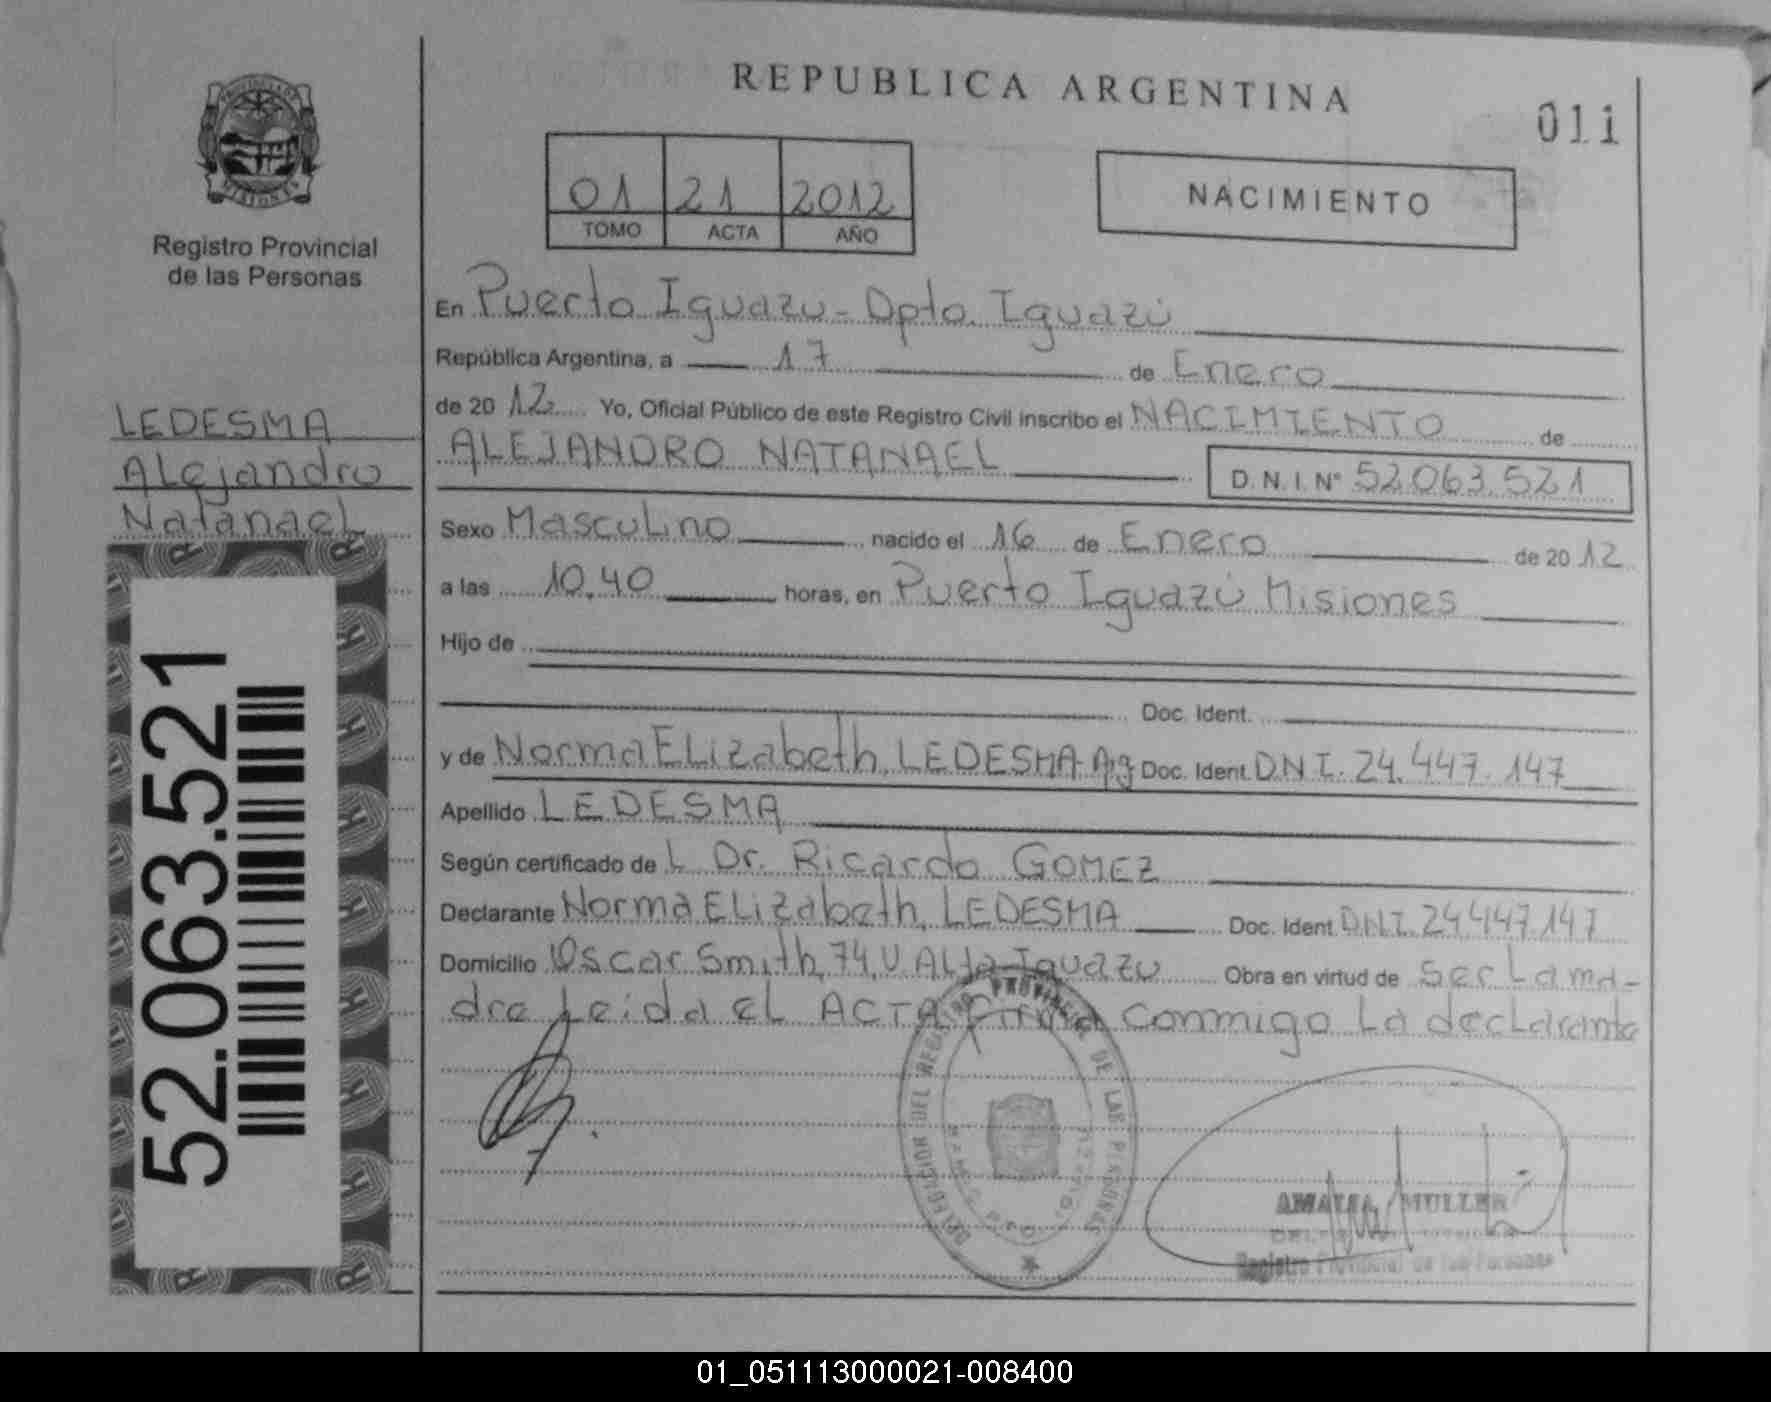 REPUBLICA ARGENTINA
011
01 21 2012
TOMO ACTA AÑO
NACIMIENTO
PROVINCIA DE MISIONES
Registro Provincial
de las Personas
LEDESMA
Alejandro
Natanael
52.063.521
En Puerto Iguazu - Dpto. Iguazú
República Argentina, a 17 de Enero
de 2012 Yo, Oficial Público de este Registro Civil inscribo el NACIMIENTO de
ALEJANDRO NATANAEL D.N.I. Nº 52.063.521
Sexo Masculino nacido el 16 de Enero de 2012
a las 10,40 horas, en Puerto Iguazú Misiones
Hijo de
Doc. Ident.
y de Norma Elizabeth, LEDESMA Arg Doc. Ident. D.N.I. 24.447.147
Apellido LEDESMA
Según certificado de L Dr. Ricardo GOMEZ
Declarante Norma Elizabeth, LEDESMA Doc. Ident D.N.I. 24447147
Domicilio Oscar Smith, 74, V. Alta Iguazu Obra en virtud de Ser La ma-
dre Leida el ACTA Firma conmigo La declarante
DELEGACION DEL REGISTRO PROVINCIAL DE LAS PERSONAS
AMALIA MULLER
Registro Provincial de las Personas
01_051113000021-008400